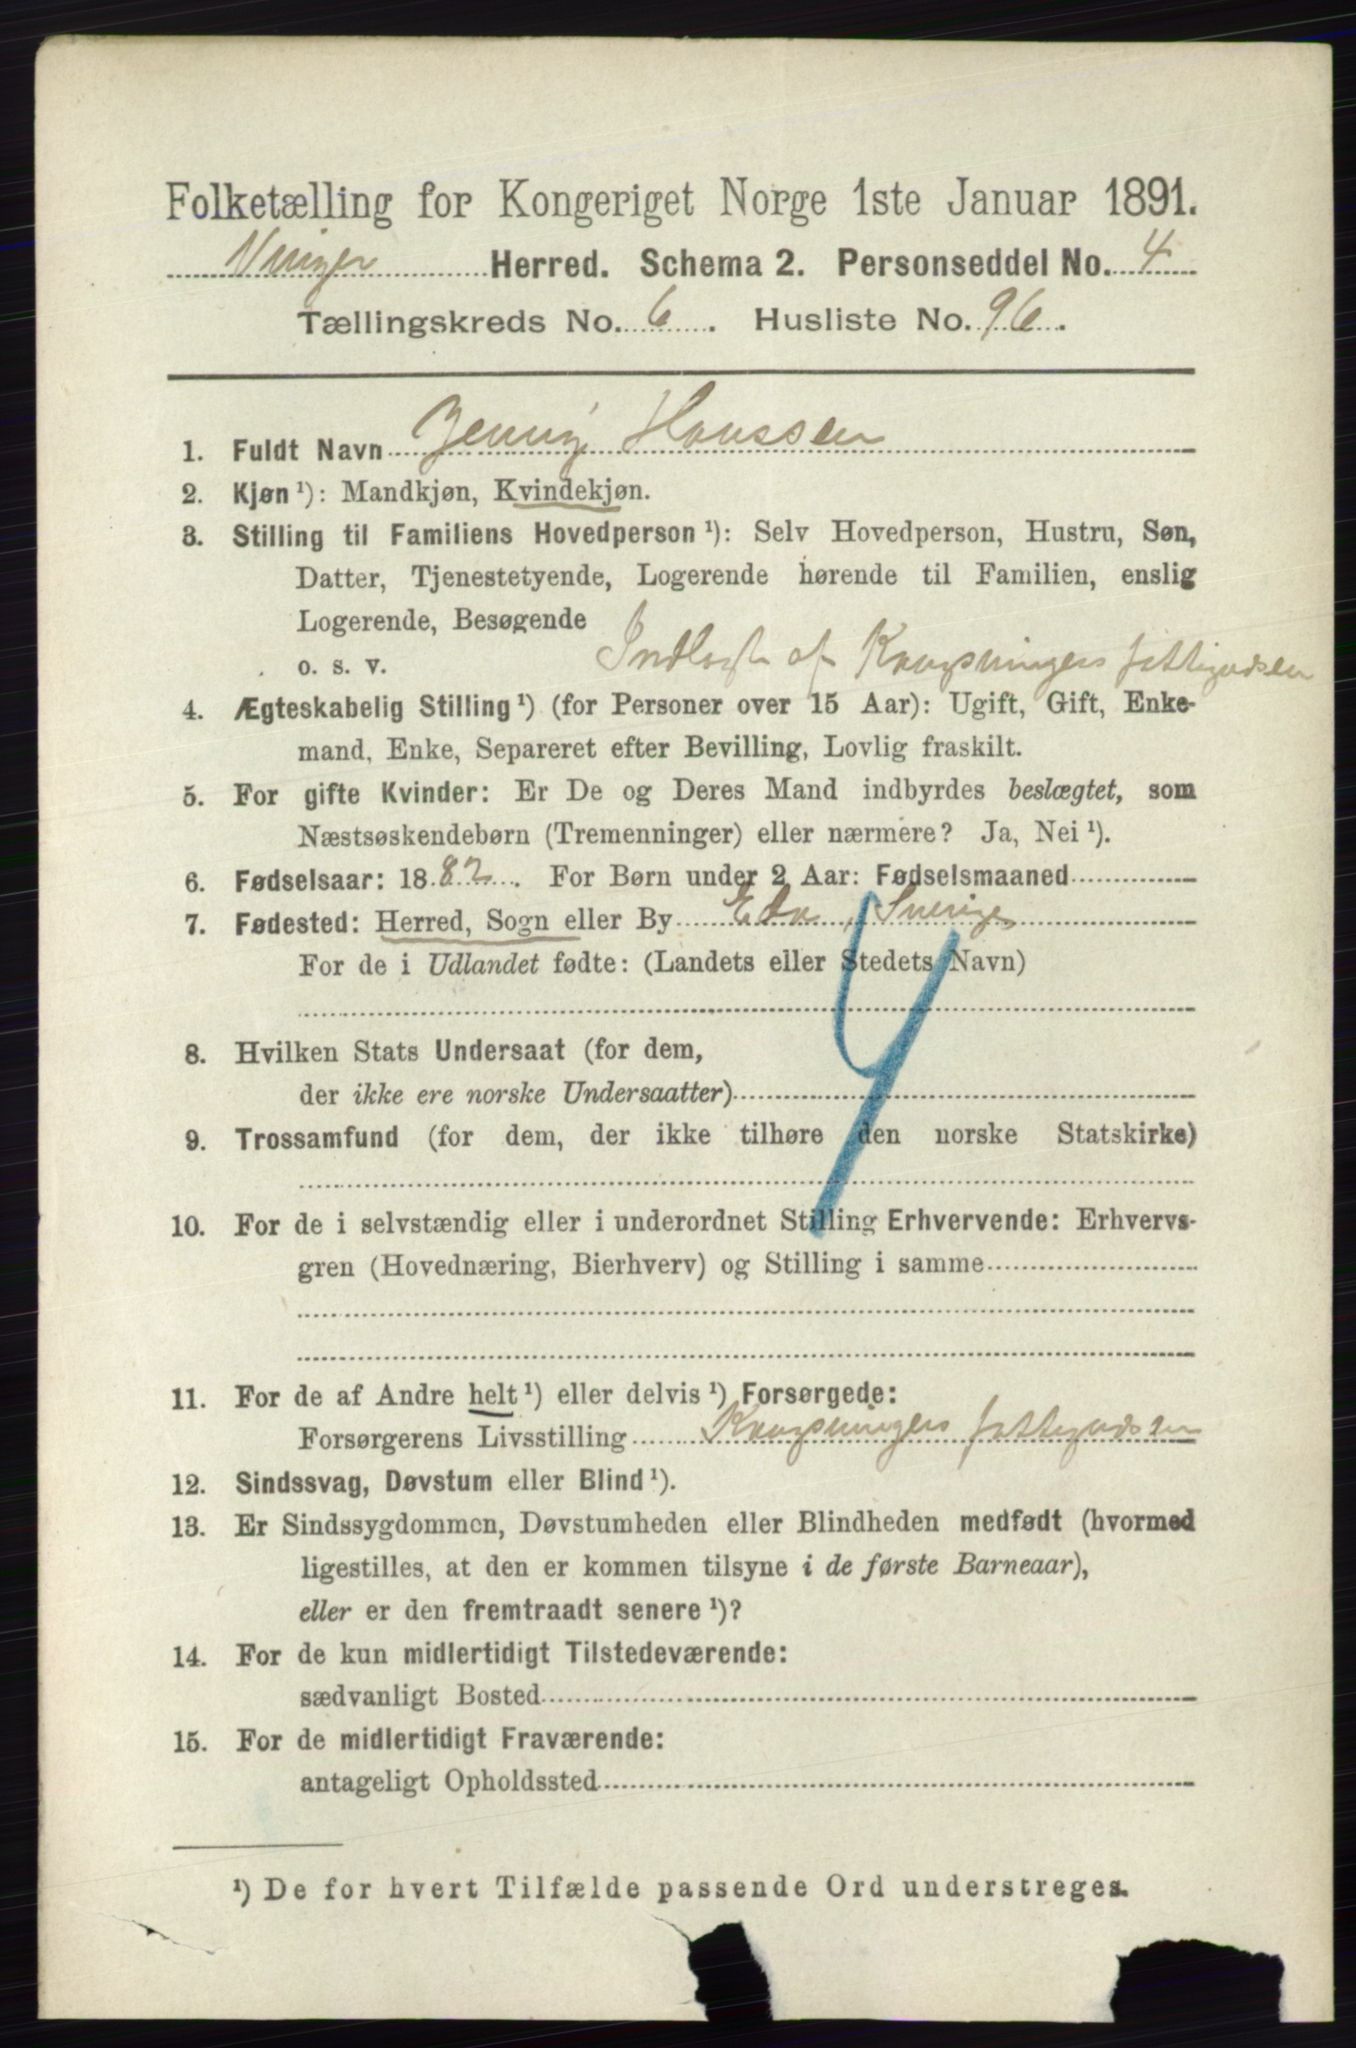 Folketælling for Kongeriget Norge 1ste Januar 1891.
Vinger Herred. Schema 2. Personseddel No. 4
Tællingskreds No. 6. Husliste No. 96.
1. Fuldt Navn Jenny Hanssen
2. Kjøn ¹): Mandkjøn, Kvindekjøn.
3. Stilling til Familiens Hovedperson ¹): Selv Hovedperson, Hustru, Søn,
Datter, Tjenestetyende, Logerende hørende til Familien, enslig
Logerende, Besøgende
o. s. v. Indlagt af Kongsvingers fattigvdsen
4. Ægteskabelig Stilling ¹) (for Personer over 15 Aar): Ugift, Gift, Enke-
mand, Enke, Separeret efter Bevilling, Lovlig fraskilt.
5. For gifte Kvinder: Er De og Deres Mand indbyrdes beslægtet, som
Næstsøskendebørn (Tremenninger) eller nærmere? Ja, Nei ¹).
6. Fødselsaar: 1882. For Børn under 2 Aar: Fødselsmaaned
7. Fødested: Herred, Sogn eller By Eda, Sverige
For de i Udlandet fødte: (Landets eller Stedets Navn)
8. Hvilken Stats Undersaat (for dem,
der ikke ere norske Undersaatter)
9. Trossamfund (for dem, der ikke tilhøre den norske Statskirke)
10. For de i selvstændig eller i underordnet Stilling Erhvervende: Erhvervs-
gren (Hovednæring, Bierhverv) og Stilling i samme
11. For de af Andre helt ¹) eller delvis ¹) Forsørgede:
Forsørgerens Livsstilling Kongsvingers fattigvdsen
12. Sindssvag, Døvstum eller Blind ¹).
13. Er Sindssygdommen, Døvstumheden eller Blindheden medfødt (hvormed
ligestilles, at den er kommen tilsyne i de første Barneaar),
eller er den fremtraadt senere ¹)?
14. For de kun midlertidigt Tilstedeværende:
sædvanligt Bosted
15. For de midlertidigt Fraværende:
antageligt Opholdssted
¹) De for hvert Tilfælde passende Ord understreges.